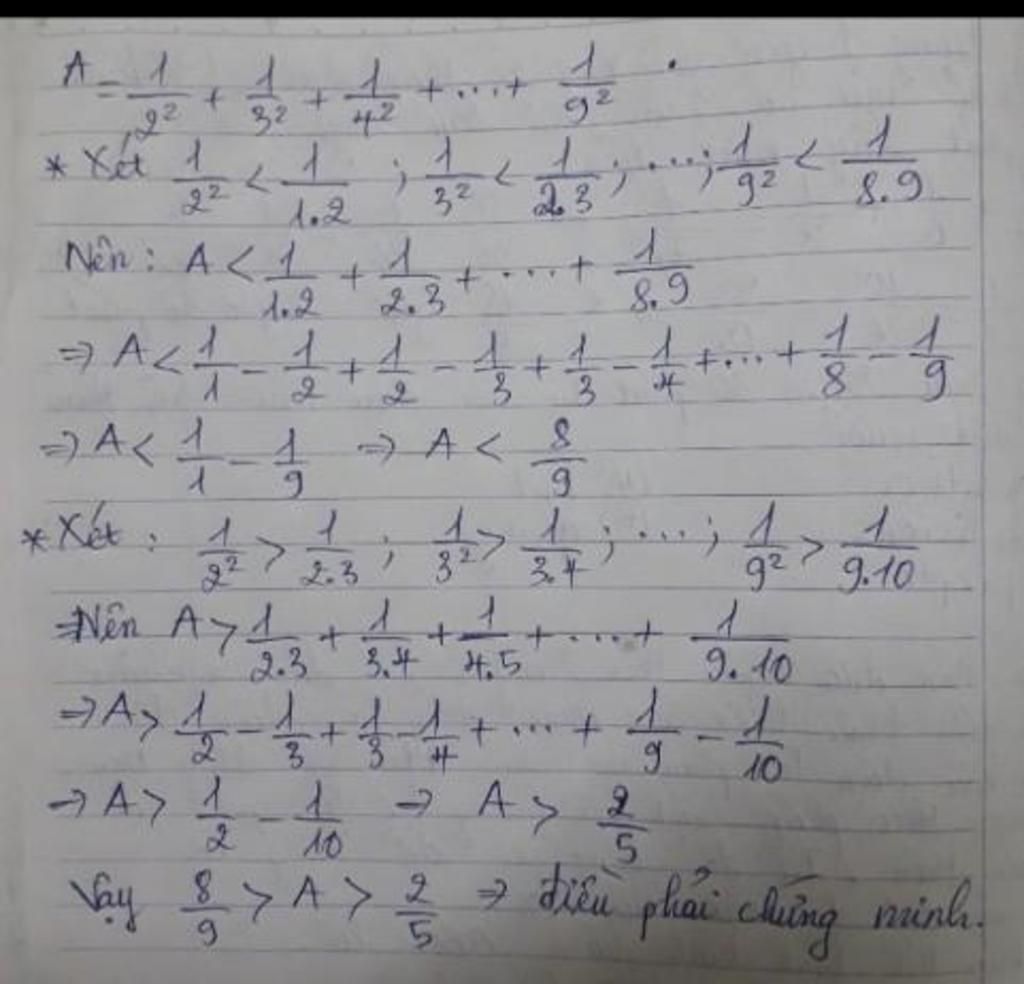 A = 1/2² + 1/3² + 1/4² + ... + 1/9² .
* Xét 1/2² < 1/1.2 ; 1/3² < 1/2.3 ; ... ; 1/9² < 1/8.9
Nên : A < 1/1.2 + 1/2.3 + ... + 1/8.9
=> A < 1/1 - 1/2 + 1/2 - 1/3 + 1/3 - 1/4 + ... + 1/8 - 1/9
=> A < 1/1 - 1/9 => A < 8/9
* Xét : 1/2² > 1/2.3 ; 1/3² > 1/3.4 ; ... ; 1/9² > 1/9.10
=> Nên A > 1/2.3 + 1/3.4 + 1/4.5 + ... + 1/9.10
=> A > 1/2 - 1/3 + 1/3 - 1/4 + ... + 1/9 - 1/10
=> A > 1/2 - 1/10 => A > 2/5
Vậy 8/9 > A > 2/5 => điều phải chứng minh.